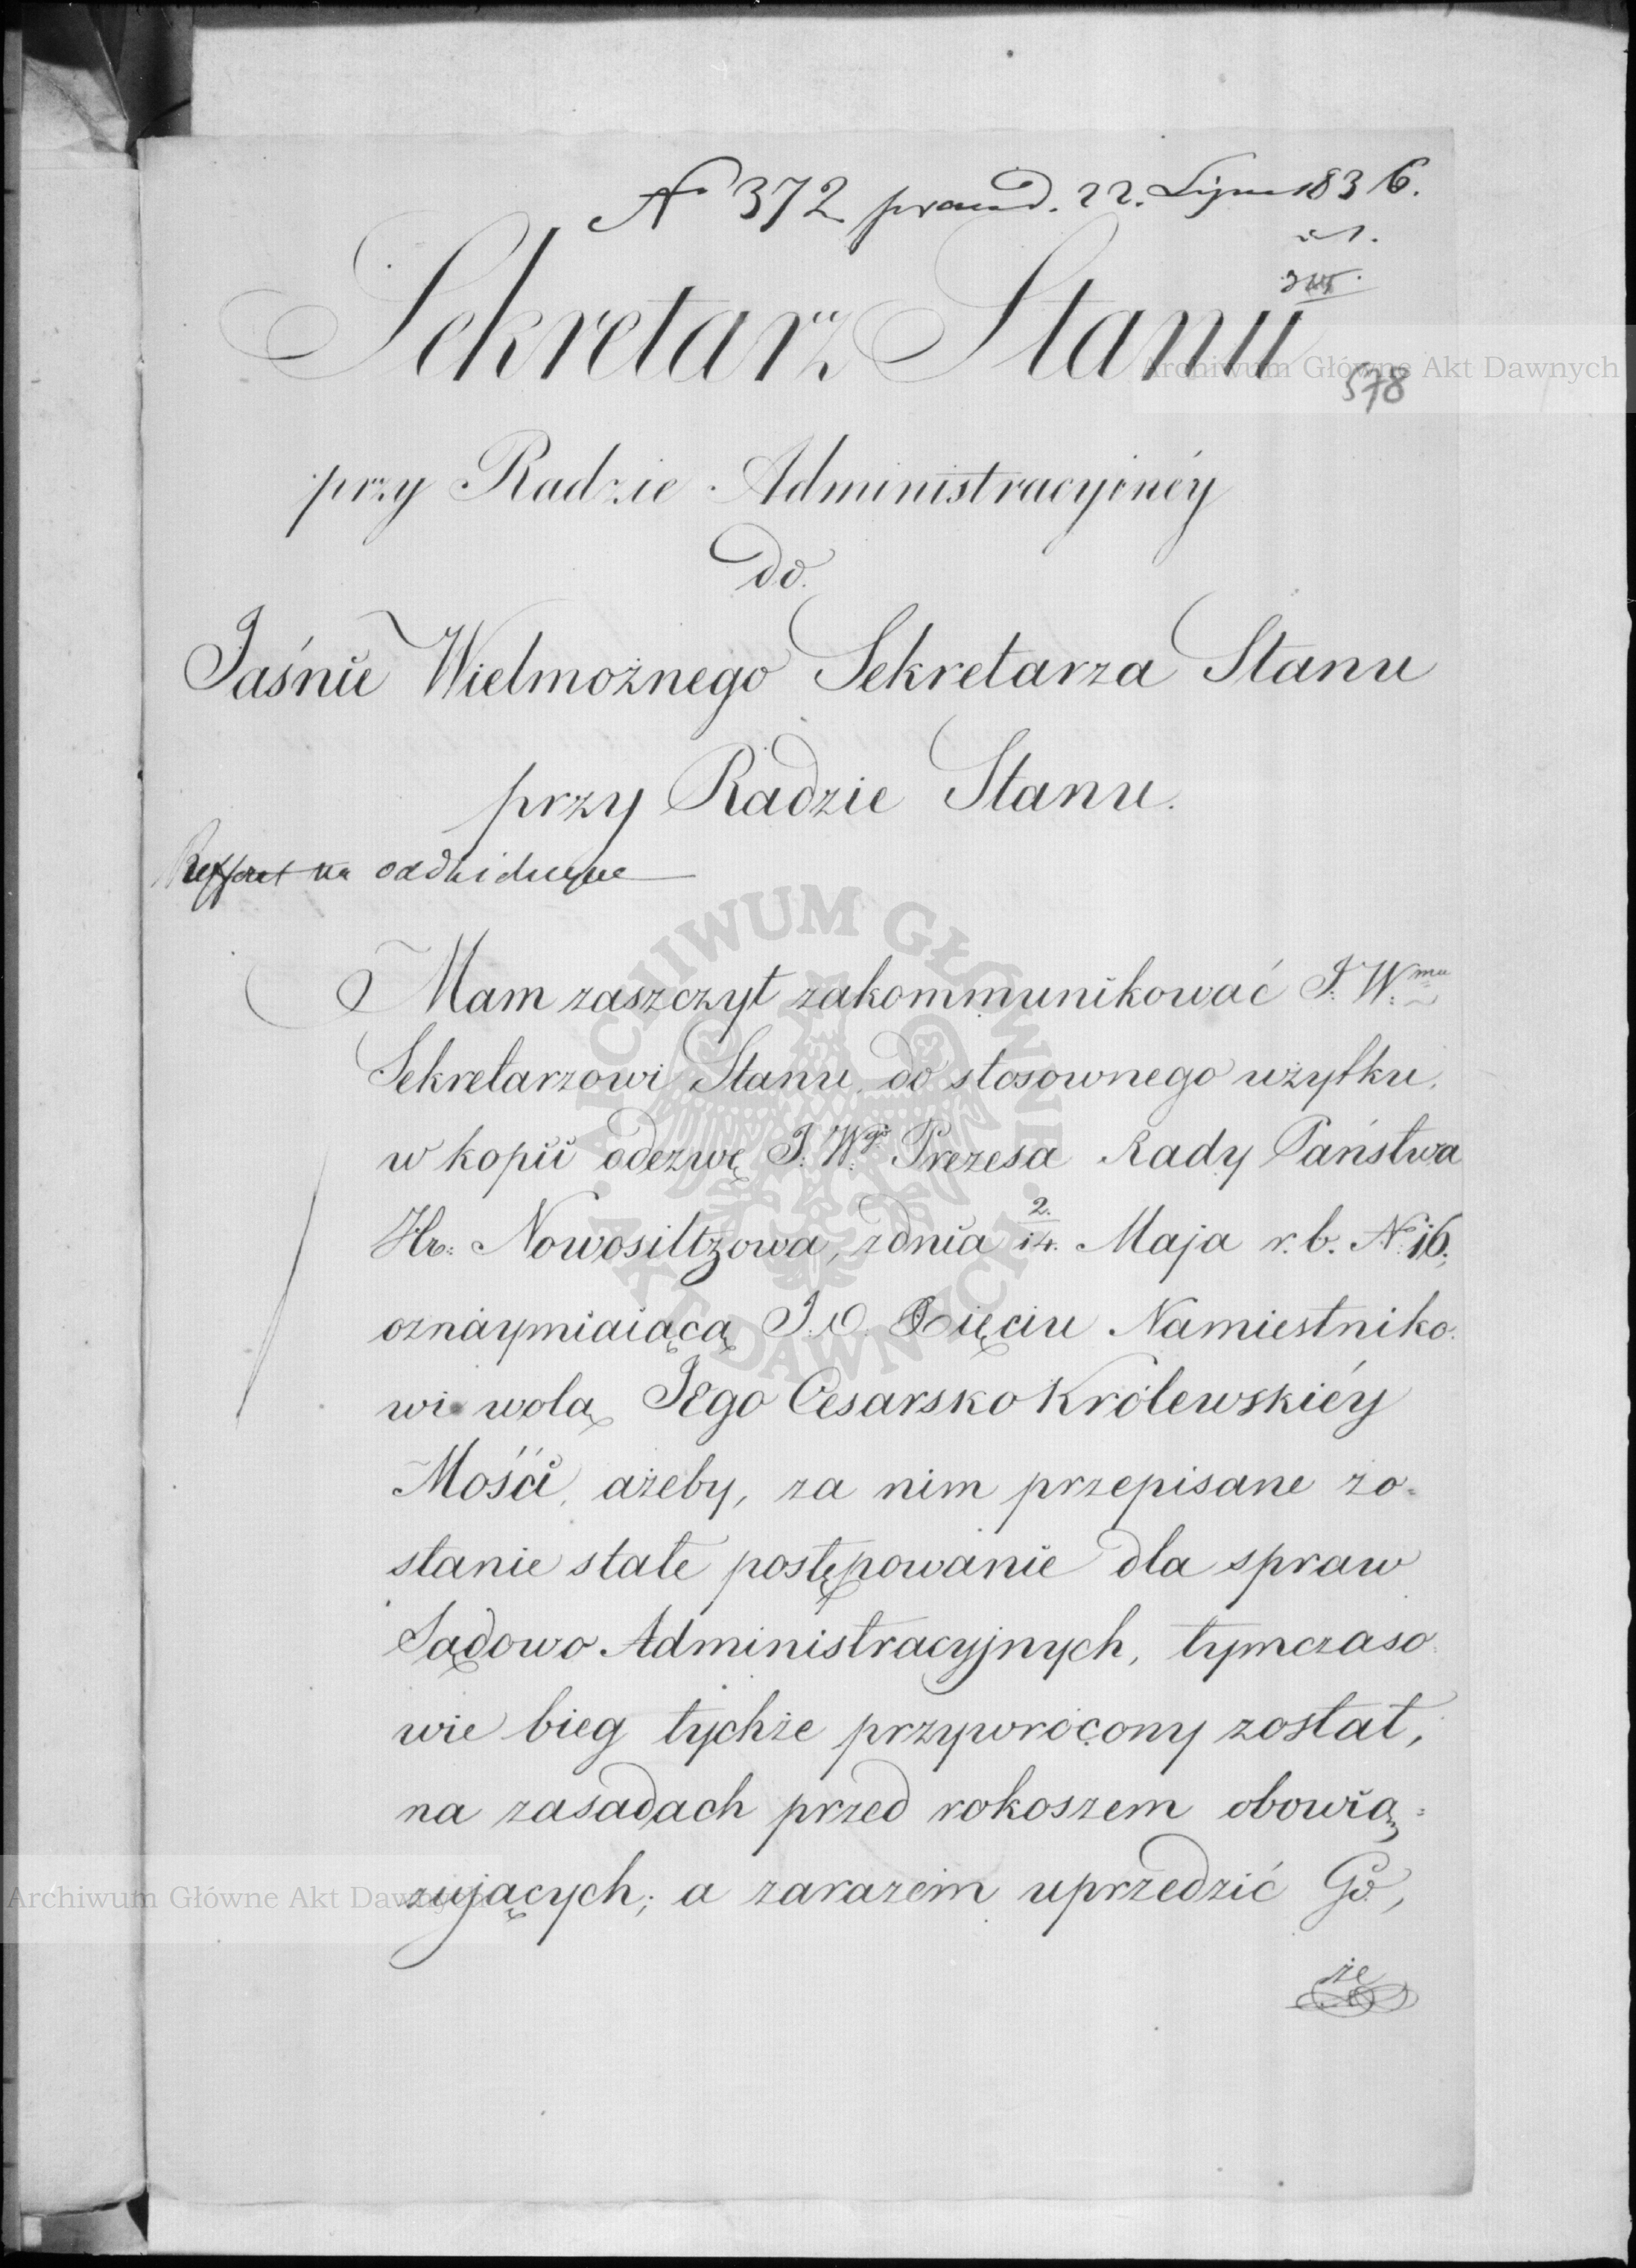 N 372 d. 22. Lipca 1836.
Sekretarz Stanu
578
przy Radzie Administracyinéy
do
Jaśnie Wielmożnego Sekretarza Stanu
przy Radzie Stanu.
Mam zaszczyt zakommunikować J. W.mu
Sekretarzowi Stanu do stosownego użytku,
w kopii odezwę J. W.go Prezesa Rady Państwa
Hr: Nowosiltzowa, z dnia 2/14. Maja r. b. N. 16,
oznaymiaiącą J. O. Xięciu Namiestniko:
wi wolą JEgo Cesarsko Królewskiéy
Mości, ażeby, za nim przepisane zo:
stanie stałe postępowanie dla spraw
Sądowo Administracyjnych, tymczaso
wie bieg tychże przywrócony został,
na zasadach przed rokoszem obowią:
zujących; a zarazem uprzedzić Go,
że
Archiwum Główne Akt Dawnych
ARCHIWUM GŁÓWNE AKT DAWNYCH
Archiwum Główne Akt Dawnych